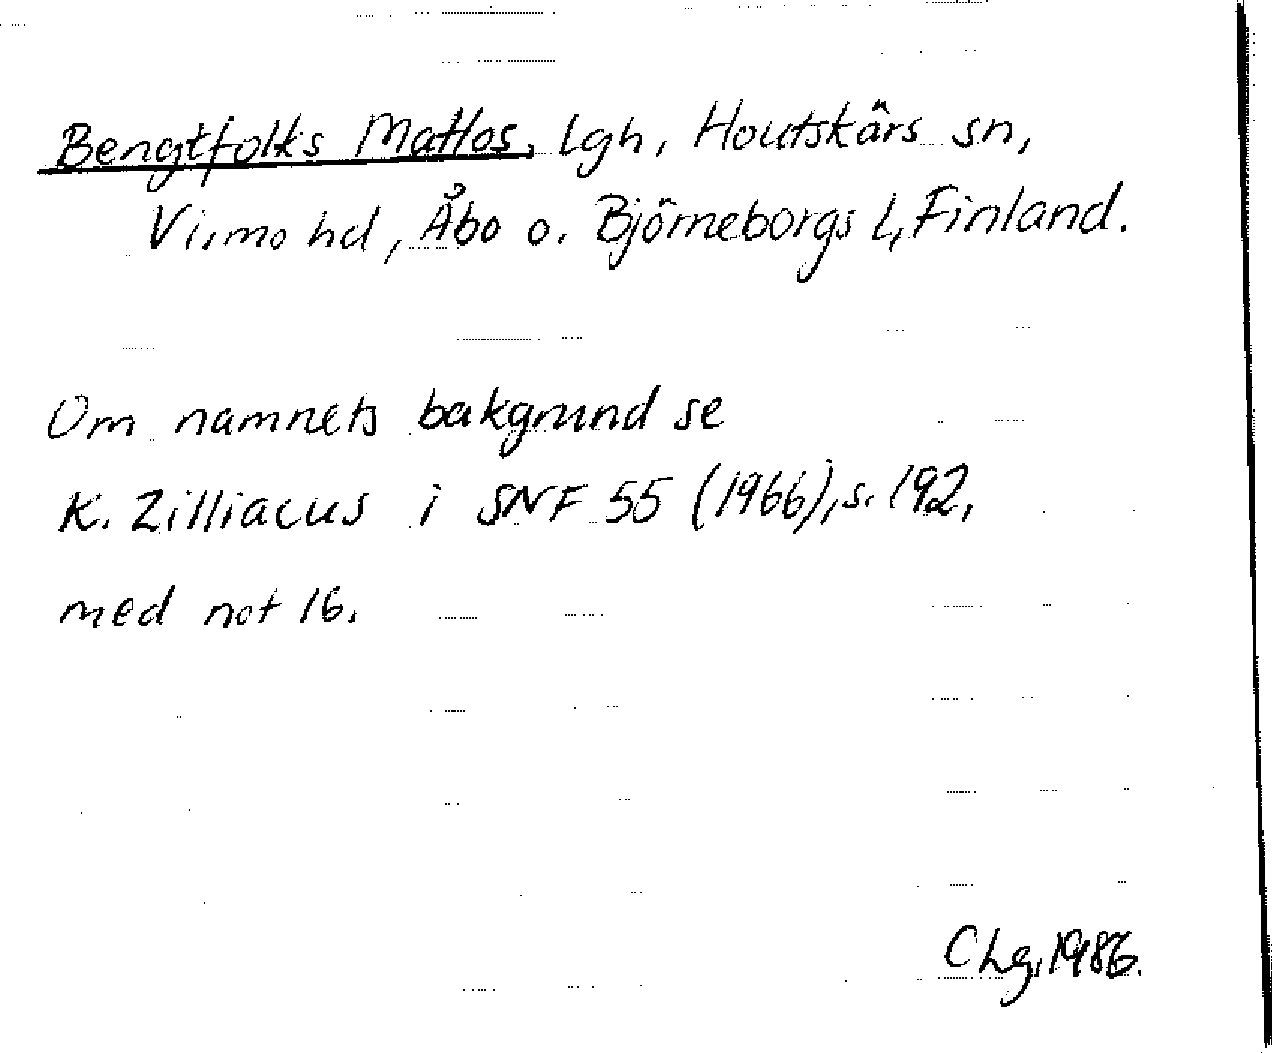 Bengtfolks Mattos, lgh, Houtskärs sn,
Virmo hd, Åbo o. Björneborgs l, Finland.
Om namnets bakgrund se
K. Zilliacus i SNF 55 (1966), s. 192,
med not 16.
CLg, 1986.